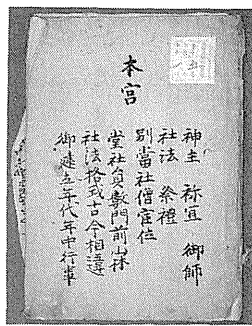 本宮
神主 祢宜 御師
社法 祭禮
別當社僧官位
堂社員数門前山林
社法格式古今相違
御建立年代年中行事